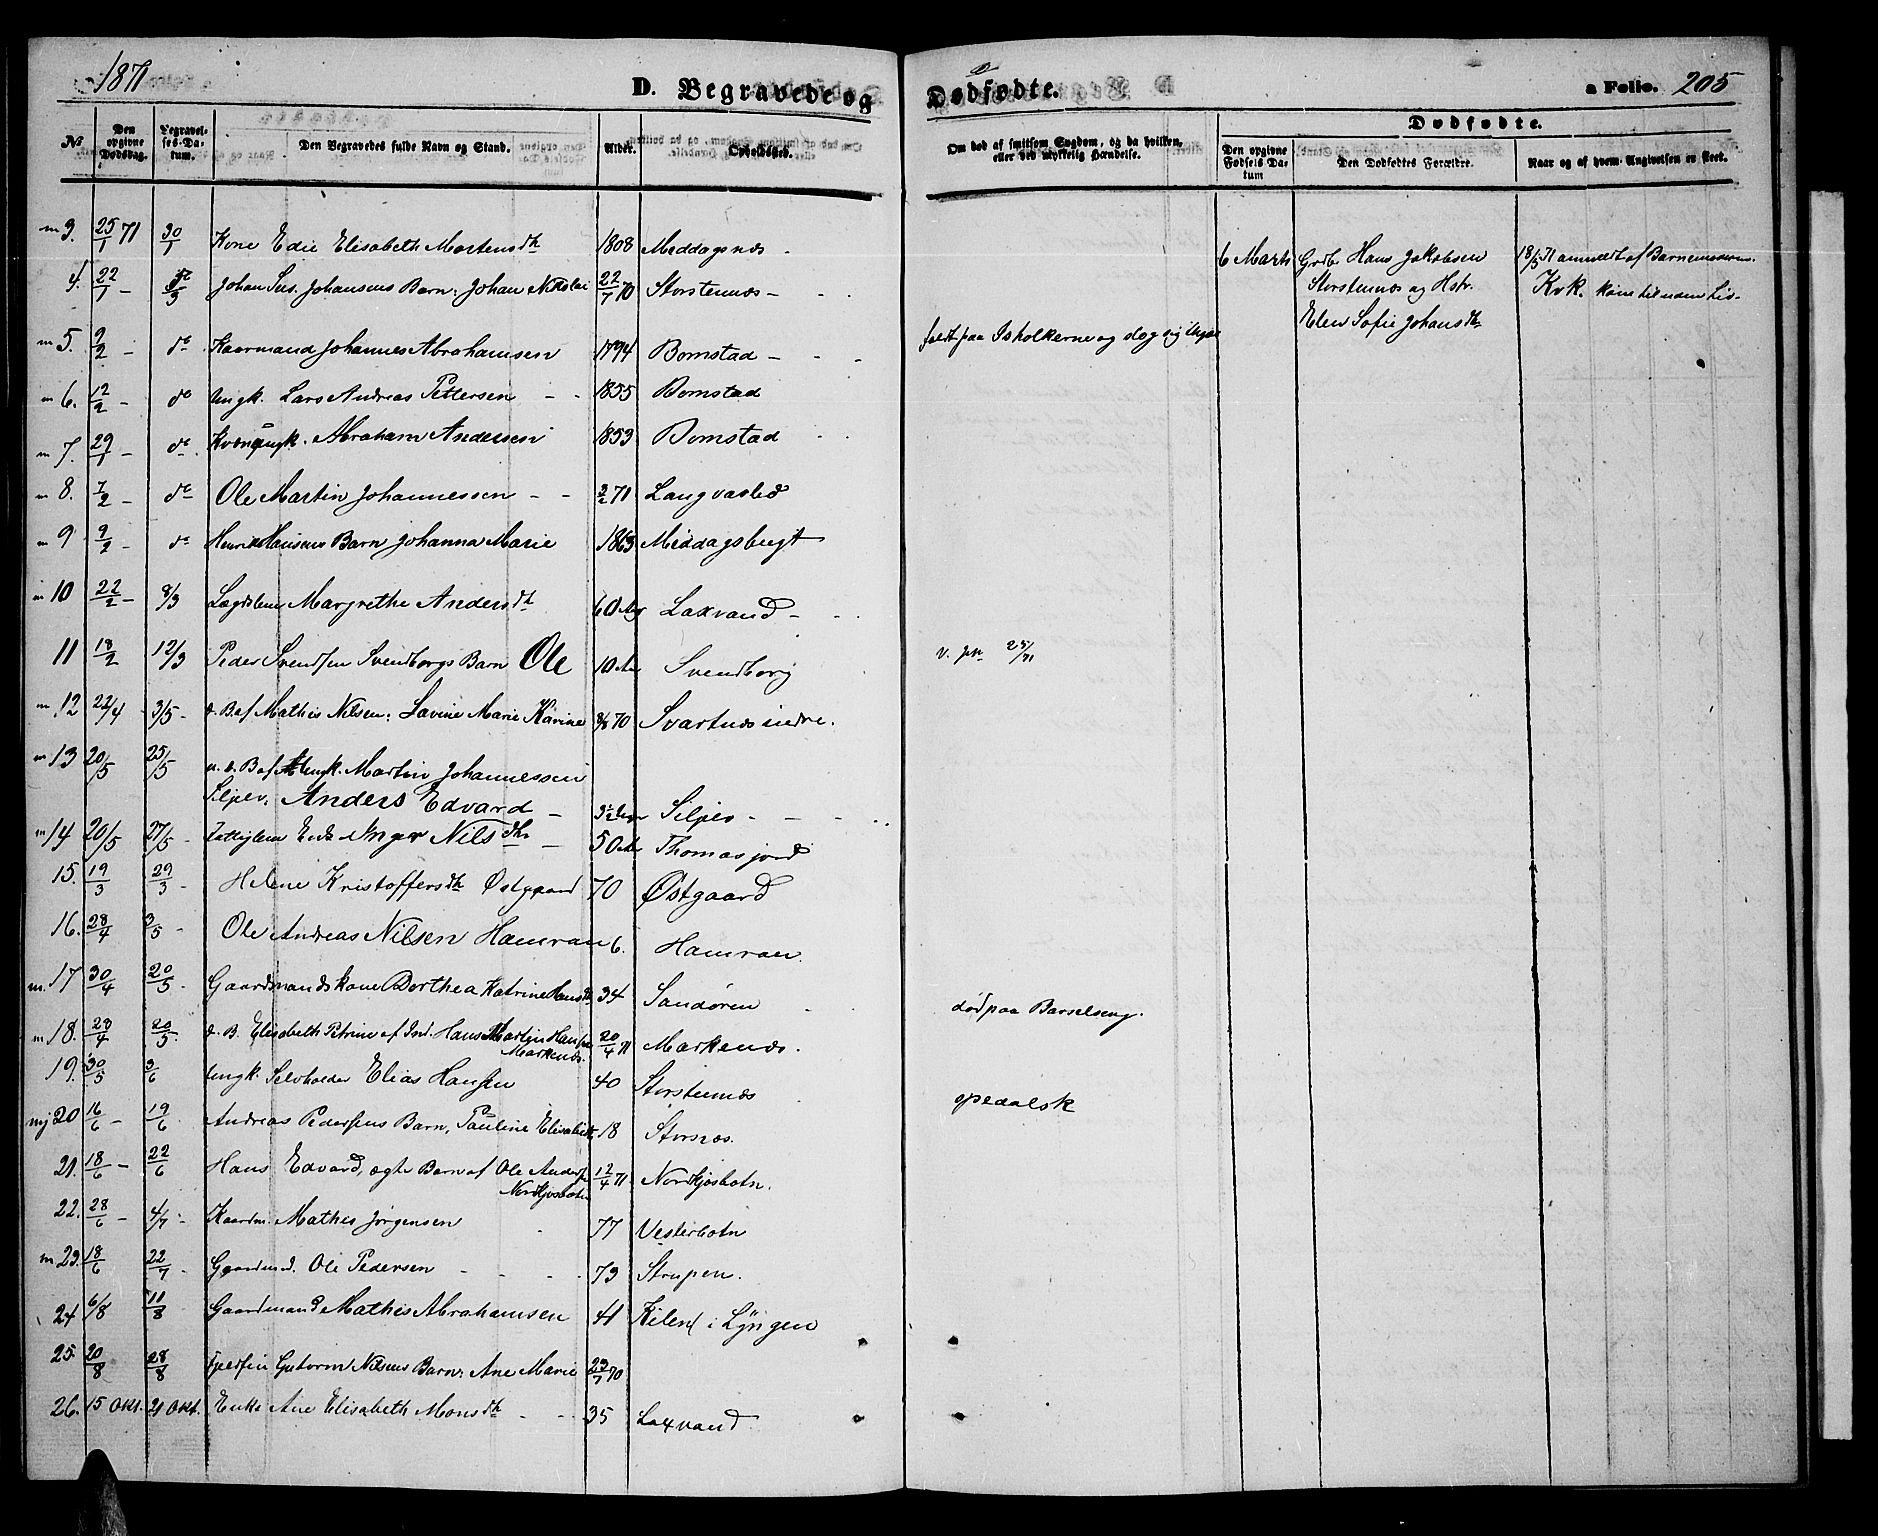 1871
D. Begravede og Dødfødte.
a Folio. 205
№ Den opgivne Dødsdag. Begravelses-Datum. Den Begravedes fulde Navn og Stand. Alder. Opholdssted. Om død af smitsom Sygdom, og da hvilken, eller ved ulykkelig Hændelse.
Dødfødte.
Den opgivne Fødsels Datum Den Dødfødtes Forældre. Naar og af hvem Angivelsen er skeet.
m 3. 25/1 71 30/1 Kone Edie Elisabeth Mortensdt 1808 Middagsnæs
4. 22/1 - Johan Sus. Johansens Barn: Johan Nikolai 22/7 70 Storstennæs
m 5. 9/2 - do Kaarmand Johannes Abrahamsen 1794 Bomstad - faldt paa Isholkerne og slog sig
m 6. 12/2 - do Ungk. Lars Andreas Pettersen 1855 Bomstad
m 7. 29/1 - do Ungk. Abraham Andersen 1853 Bomstad
m 8. 7/2 - do Ole Martin Johannessen 3/2 71 Langvasbed
m 9 9/2 - do Henrik Hansens Barn Johanna Marie 1863 Middagsbugt
m 10 22/2 - 8/3 Lægdslem Margrethe Andersdt 60 Aar Laxvand
11 18/2 12/3 Peder Svendsen Svendborgs Barn Ole 10 Aar Svendborg
m 12 22/4 3/5 - d. B. af Mathis Nilsen: Lavine Marie Karine 70 Svartnæs indre.
m 13 20/5 25/5 u. d. B af Ungk. Martin Johannessen
Siljev. Anders Edvard Siljev
m 14 20/5 27/5 Fattiglem Enke Inger Nilsdt 50 Aar Thomasjord
15. 19/3 29/3 - Helene Kristoffersdt Østgaard 70 Østgaard
16. 28/4 3/5 - Ole Andreas Nilsen Hamran 6. Hamran
m. 17 30/4 20/5 - Gaardmandskone Dorthea Katrine Hansdt 34 Sandøren død paa Barselseng.
m 18. 28/4 20/5. d. B. Elisabeth Petrine af Ind. Hans Martin Hansen
Markenæs. 20/4 71 Markenæs.
19. 30/5 3/6 Ungk. Selvholder Elias Hansen 40 Storstennæs spedalsk
mj 20 16/6 - 19/6 Andreas Pedersens Barn, Pauline Elisabeth 18 Stornæs.
21. 18/6 - 22/6 Hans Edvard, ægte Barn af Ole Anders
Nordkjosbotn 12/4 71 Nordkjosbotn.
22. 28/6 - 4/7 - Kaarm. Mathis Jørgensen 77 Vesterbotn
m 23. 18/6 22/7 - Gaardmd. Ole Pedersen 73 Strupen.
24 6/8 11/8 Gaardmand Mathis Abrahamsen 41 Kilen i Lyngen
25. 20/8 28/8 Guttorm Nilsens Barn: Ane Marie 23/7 70
26. 15 Okt. 21 Okt. Enke Ane Elisabeth Monsdt 35 Laxvand
6 Marts Grdb. Hans Jakobsen
Storstennæs og Hstr.
Elen Sofie Johansdt
18/5 71 anmeldt af
Kvk. kom til uden Liv.